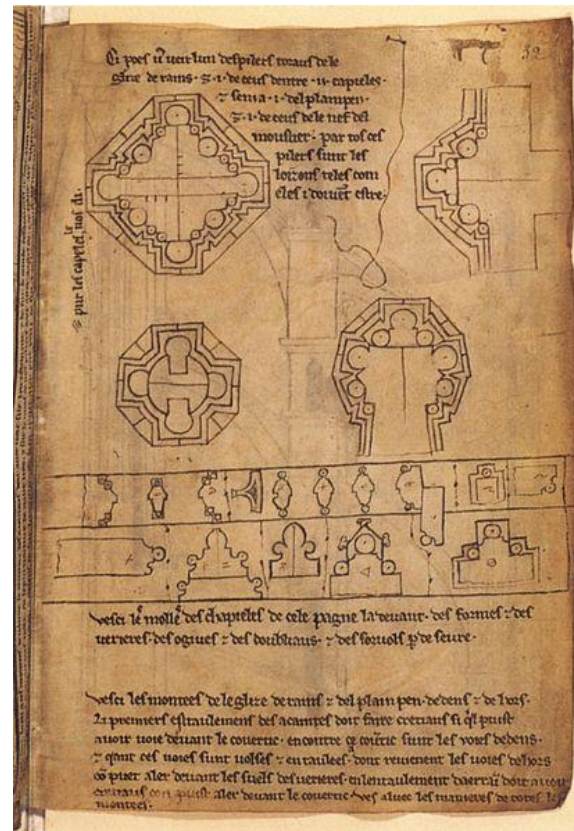 Ci poes u̅ ueir lun des pilers toraus de le
glize de rains · ⁊ · i · de ceus dentre · ii · capieles ·
⁊ sen i a · i · del plain pen ·
⁊ · i · de ceus de le nef del
moustier · par tos ces
pilers sunt les
loizons teles com
eles i doiuēt estre ·
32
uesci le molle des chapieles de cele pagne la deuant · des formes ⁊ des
uerieres · des ogiues ⁊ des doubliaus · ⁊ des sorvols p̱ deseure ·
uesci les montees de le glize de rains ⁊ del plain pen · dedens ⁊ de hors ·
li premiers estaulemens des acaintes doit faire cretiaus si q̄l puist
auoir uoie deuant le couertic · encontre ce couertic sunt les uoies dedens ·
⁊ qant ces uoies sunt uolses ⁊ entaulees · dont reuienent les uoies dehors
cō puet aler deuant les suels des uerieres · en lentaulement daerrai doit auoir
cretiaus con puist aler deuant le couertic · ues aluec les manieres de totes les
montees ·